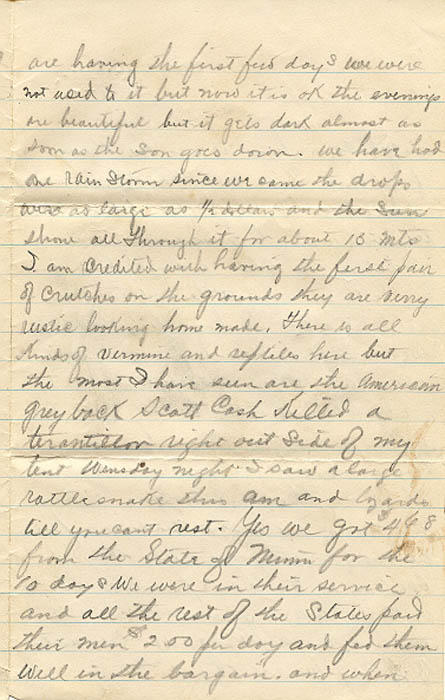 are having the first few days we were
not used to it but now it is ok the evenings
are beautiful but it gets dark almost as
soon as the Son goes down. we have had
one Rain Storm since we came the drops
were as large as 1/2 dollars and the Sun
shone all through it for about 15 mts
I am credited with having the first pair
of Crutches on the grounds they are very
rustic looking home made. There is all
kinds of vermine and reptiles here but
the most I have seen are the American
grey back Scott Cash Killed a
terantillor right out Side of my
tent Wensday night I saw a large
rattlesnake this am and lizards
till you cant rest. Yes we got $4.98
from the State of Minn for the
10 days We were in their service
and all the rest of the States paid
their men $2.00 per day and fed them
well in the bargain. and when